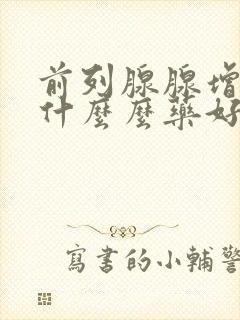 前列腺腺增
什麼麼藥好
寫書的小輔警